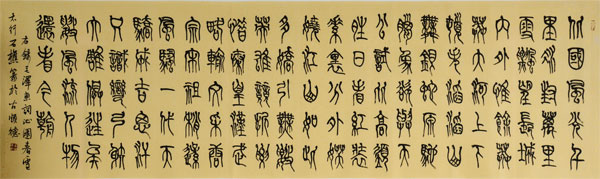 北國風光千
里冰封萬里
雪飄望長城
內外惟餘莽
莽大河上下
頓失滔滔山
舞銀蛇原馳
蠟象欲與天
公試比高須
晴日看紅裝
素裹分外妖
嬈江山如此
多嬌引無數
英雄競折腰
惜秦皇漢武
略輸文采唐
宗宋祖稍遜
風騷一代天
驕成吉思汗
只識彎弓射
大雕俱往矣
數風流人物
還看今朝
右錄毛澤東詞沁園春雪